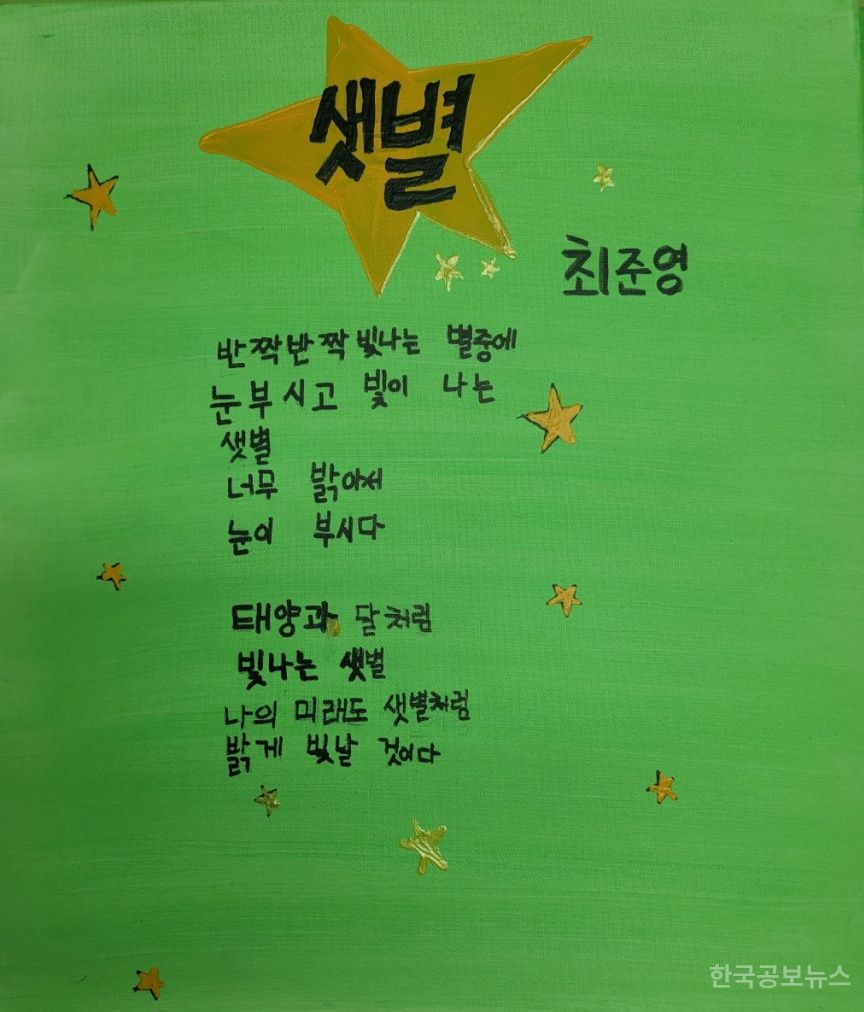 샛별
최준영
반짝반짝 빛나는 별중에
눈부시고 빛이 나는
샛별
너무 밝아서
눈이 부시다
태양과 달처럼
빛나는 샛별
나의 미래도 샛별처럼
밝게 빛날 것이다
한국공보뉴스